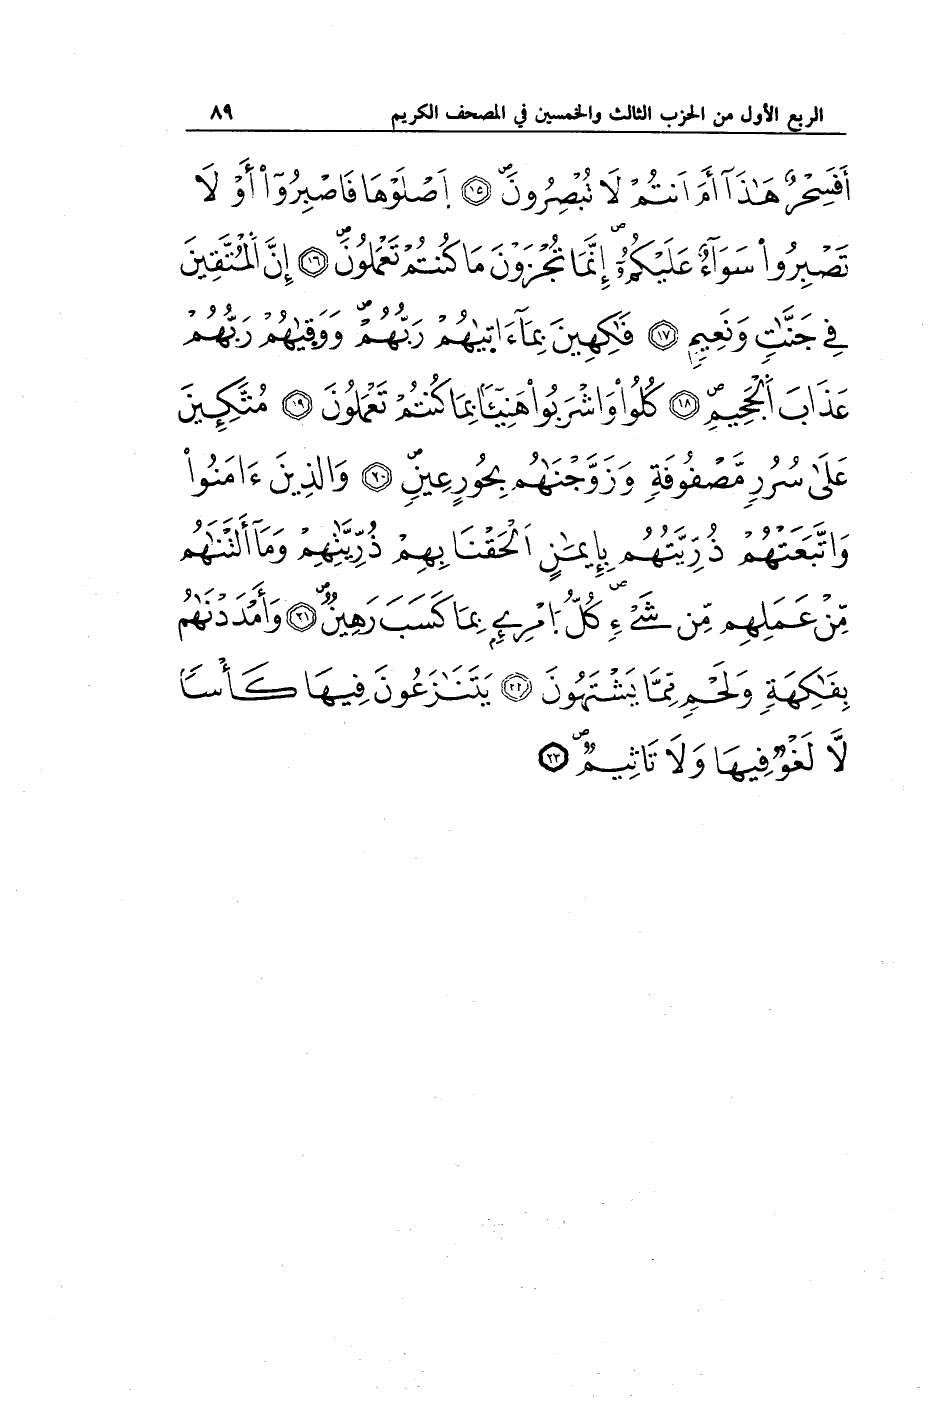 الربع الأول من الحزب الثالث والخمسين في المصحف الكريم ٨٩
أَفَسِحْرٌ هَٰذَآ أَمَ اَنتُمْ لَا تُبْصِرُونَۖ ١٥ اَصْلَوْهَا فَاصْبِرُوٓاْ أَوْ لَا
تَصْبِرُواْ سَوَآءٌ عَلَيْكُمُۥٓۖ إِنَّمَا تُجْزَوْنَ مَا كُنتُمْ تَعْمَلُونَۖ ١٦ إِنَّ اَلْمُتَّقِينَ
فِے جَنَّٰتٍ وَنَعِيمٍ ١٧ فَٰكِهِينَ بِمَآ ءَاتٜيٰهُمْ رَبُّهُمْۖ وَوَقٜيٰهُمْ رَبُّهُمْ
عَذَابَ اَلْجَحِيمِۖ ١٨ كُلُواْ وَاشْرَبُواْ هَنِيٓـَٔاۢ بِمَا كُنتُمْ تَعْمَلُونَ ١٩ مُتَّكِـِٕينَ
عَلَىٰ سُرُرٍ مَّصْفُوفَةٍ وَزَوَّجْنَٰهُم بِحُورٍ عِينٍۖ ٢٠ وَالذِينَ ءَامَنُواْ
وَاتَّبَعَتْهُمْ ذُرِّيَّتُهُم بِإِيمَٰنٍ اَلْحَقْنَا بِهِمْ ذُرِّيَّٰتِهِمْ وَمَآ أَلَتْنَٰهُم
مِّنْ عَمَلِهِم مِّن شَےْءٍۖ كُلُّ اُمْرِےِٕۢ بِمَا كَسَبَ رَهِينٌۖ ٢١ وَأَمْدَدْنَٰهُم
بِفَٰكِهَةٍ وَلَحْمٍ مِّمَّا يَشْتَهُونَ ٢٢ يَتَنَٰزَعُونَ فِيهَا كَأْساً
لَّا لَغْوٌ فِيهَا وَلَا تَاثِيمٌۖ ٢٣